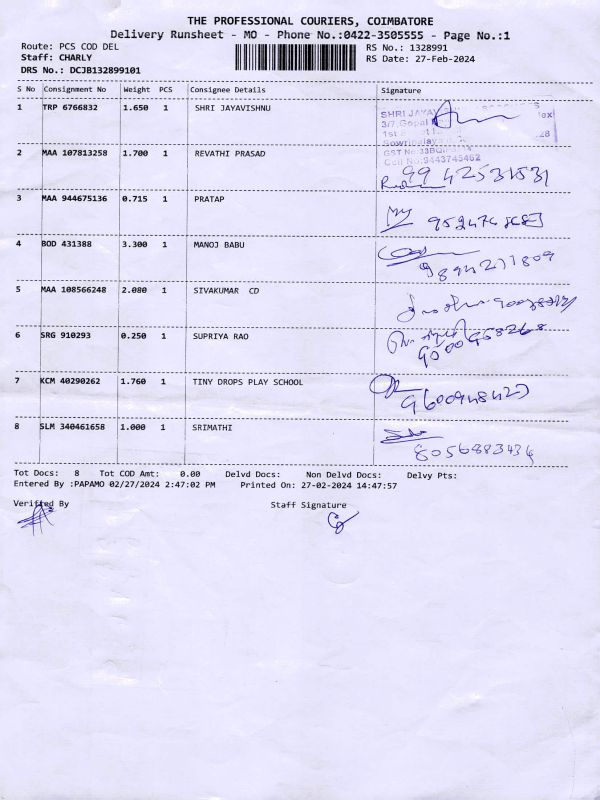 THE PROFESSIONAL COURIERS, COIMBATORE
Delivery Runsheet - MO - Phone No.:0422-3505555 - Page No.:1
Route: PCS COD DEL
Staff: CHARLY
DRS No.: DCJB132899101
RS No.: 1328991
RS Date: 27-Feb-2024
S No Consignment No Weight PCS Consignee Details Signature
1 TRP 6766832 1.650 1 SHRI JAYAVISHNU
SHRI JAYA
3/7,Gopal
1st
GST No:33BQ
Cell No:9443745462
2 MAA 107813258 1.700 1 REVATHI PRASAD
99 42531531
3 MAA 944675136 0.715 1 PRATAP
4 BOD 431388 3.300 1 MANOJ BABU
9894271809
5 MAA 108566248 2.080 1 SIVAKUMAR CD
6 SRG 910293 0.250 1 SUPRIYA RAO
7 KCM 40290262 1.760 1 TINY DROPS PLAY SCHOOL
9600948427
8 SLM 340461658 1.000 1 SRIMATHI
8056883434
Tot Docs: 8 Tot COD Amt: 0.00 Delvd Docs: Non Delvd Docs: Delvy Pts:
Entered By :PAPAMO 02/27/2024 2:47:02 PM Printed On: 27-02-2024 14:47:57
Verified By Staff Signature